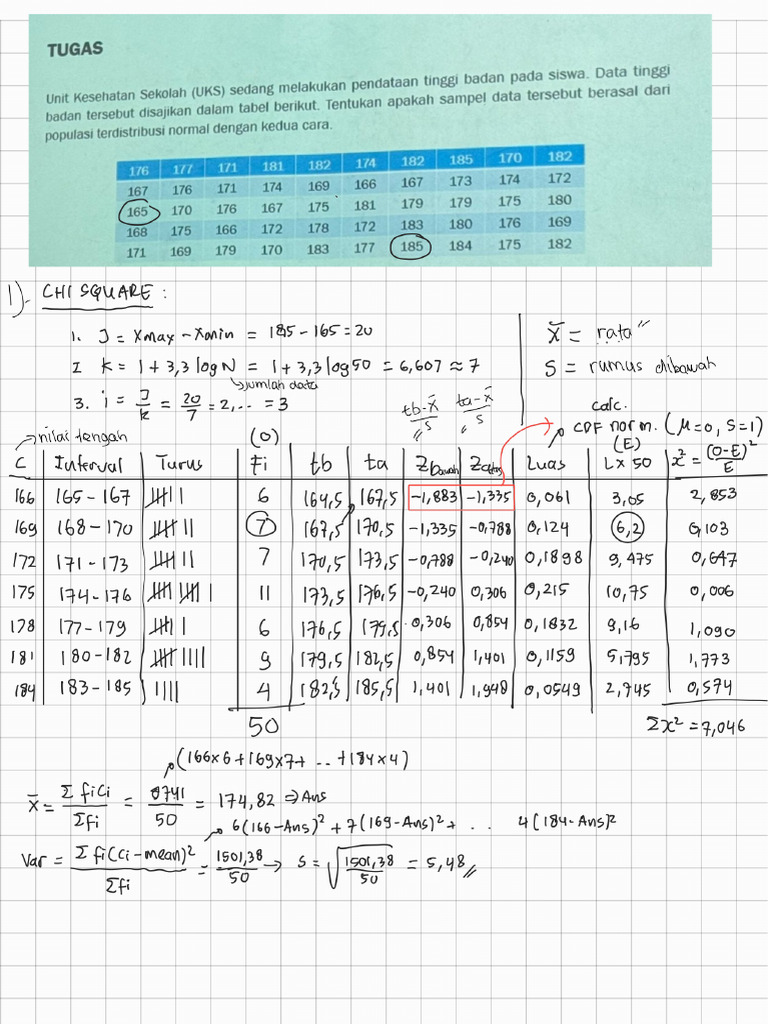 TUGAS
Unit Kesehatan Sekolah (UKS) sedang melakukan pendataan tinggi badan pada siswa. Data tinggi
badan tersebut disajikan dalam tabel berikut. Tentukan apakah sampel data tersebut berasal dari
populasi terdistribusi normal dengan kedua cara.
176 177 171 181 182 174 182 185 170 182
167 176 171 174 169 166 167 173 174 172
165 170 176 167 175 181 179 179 175 180
168 175 166 172 178 172 183 180 176 169
171 169 179 170 183 177 185 184 175 182
1). CHI SQUARE :
1. J = Xmax - Xmin = 185 - 165 = 20
2. K = 1 + 3,3 log N = 1 + 3,3 log 50 = 6,607 ≈ 7
↳ jumlah data
3. i = J/K = 20/7 = 2,... = 3
x̄ = rata"
S = rumus dibawah
tb-x̄/S ta-x̄/S
calc.
CDF norm. (μ=0, S=1)
→ nilai tengah (O) (E)
C Interval Turus Fi tb ta Zbawah Zatas Luas L x 50 x² = (O-E)²/E
166 165 - 167 6 164,5 167,5 -1,883 -1,335 0,061 3,05 2,853
169 168 - 170 7 167,5 170,5 -1,335 -0,788 0,124 6,2 0,103
172 171 - 173 7 170,5 173,5 -0,788 -0,240 0,1898 9,475 0,647
175 174 - 176 11 173,5 176,5 -0,240 0,306 0,215 10,75 0,006
178 177 - 179 6 176,5 179,5 0,306 0,854 0,1832 9,16 1,090
181 180 - 182 9 179,5 182,5 0,854 1,401 0,1159 5,795 1,773
184 183 - 185 4 182,5 185,5 1,401 1,948 0,0549 2,745 0,574
50 Σx² = 7,046
(166x6 + 169x7 + ... + 184x4)
x̄ = Σ fiCi / Σfi = 8741/50 = 174,82 ⇒ Ans
6(166-Ans)² + 7(169-Ans)² + .. 4(184-Ans)²
Var = Σ fi(Ci - mean)² / Σfi = 1501,38/50 → S = √(1501,38/50) = 5,48